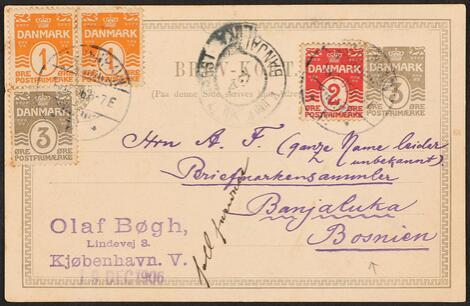 DANMARK
1
ØRE ØRE
POSTFRIMÆRKE
DANMARK
1
ØRE ØRE
POSTFRIMÆRKE
DANMARK
3
ØRE ØRE
POSTFRIMÆRKE
BREV-KORT
(Paa denne Side skrives
DANMARK
2
ØRE ØRE
POSTFRIMÆRKE
DANMARK
3
ØRE ØRE
POSTFRIMÆRKE
Hrn A. F. (ganze Name leider
unbekannt)
Briefmarkensammler
Banjaluka
Bosnien
Olaf Bøgh,
Lindevej 8.
Kjøbenhavn. V.
DEC 1906